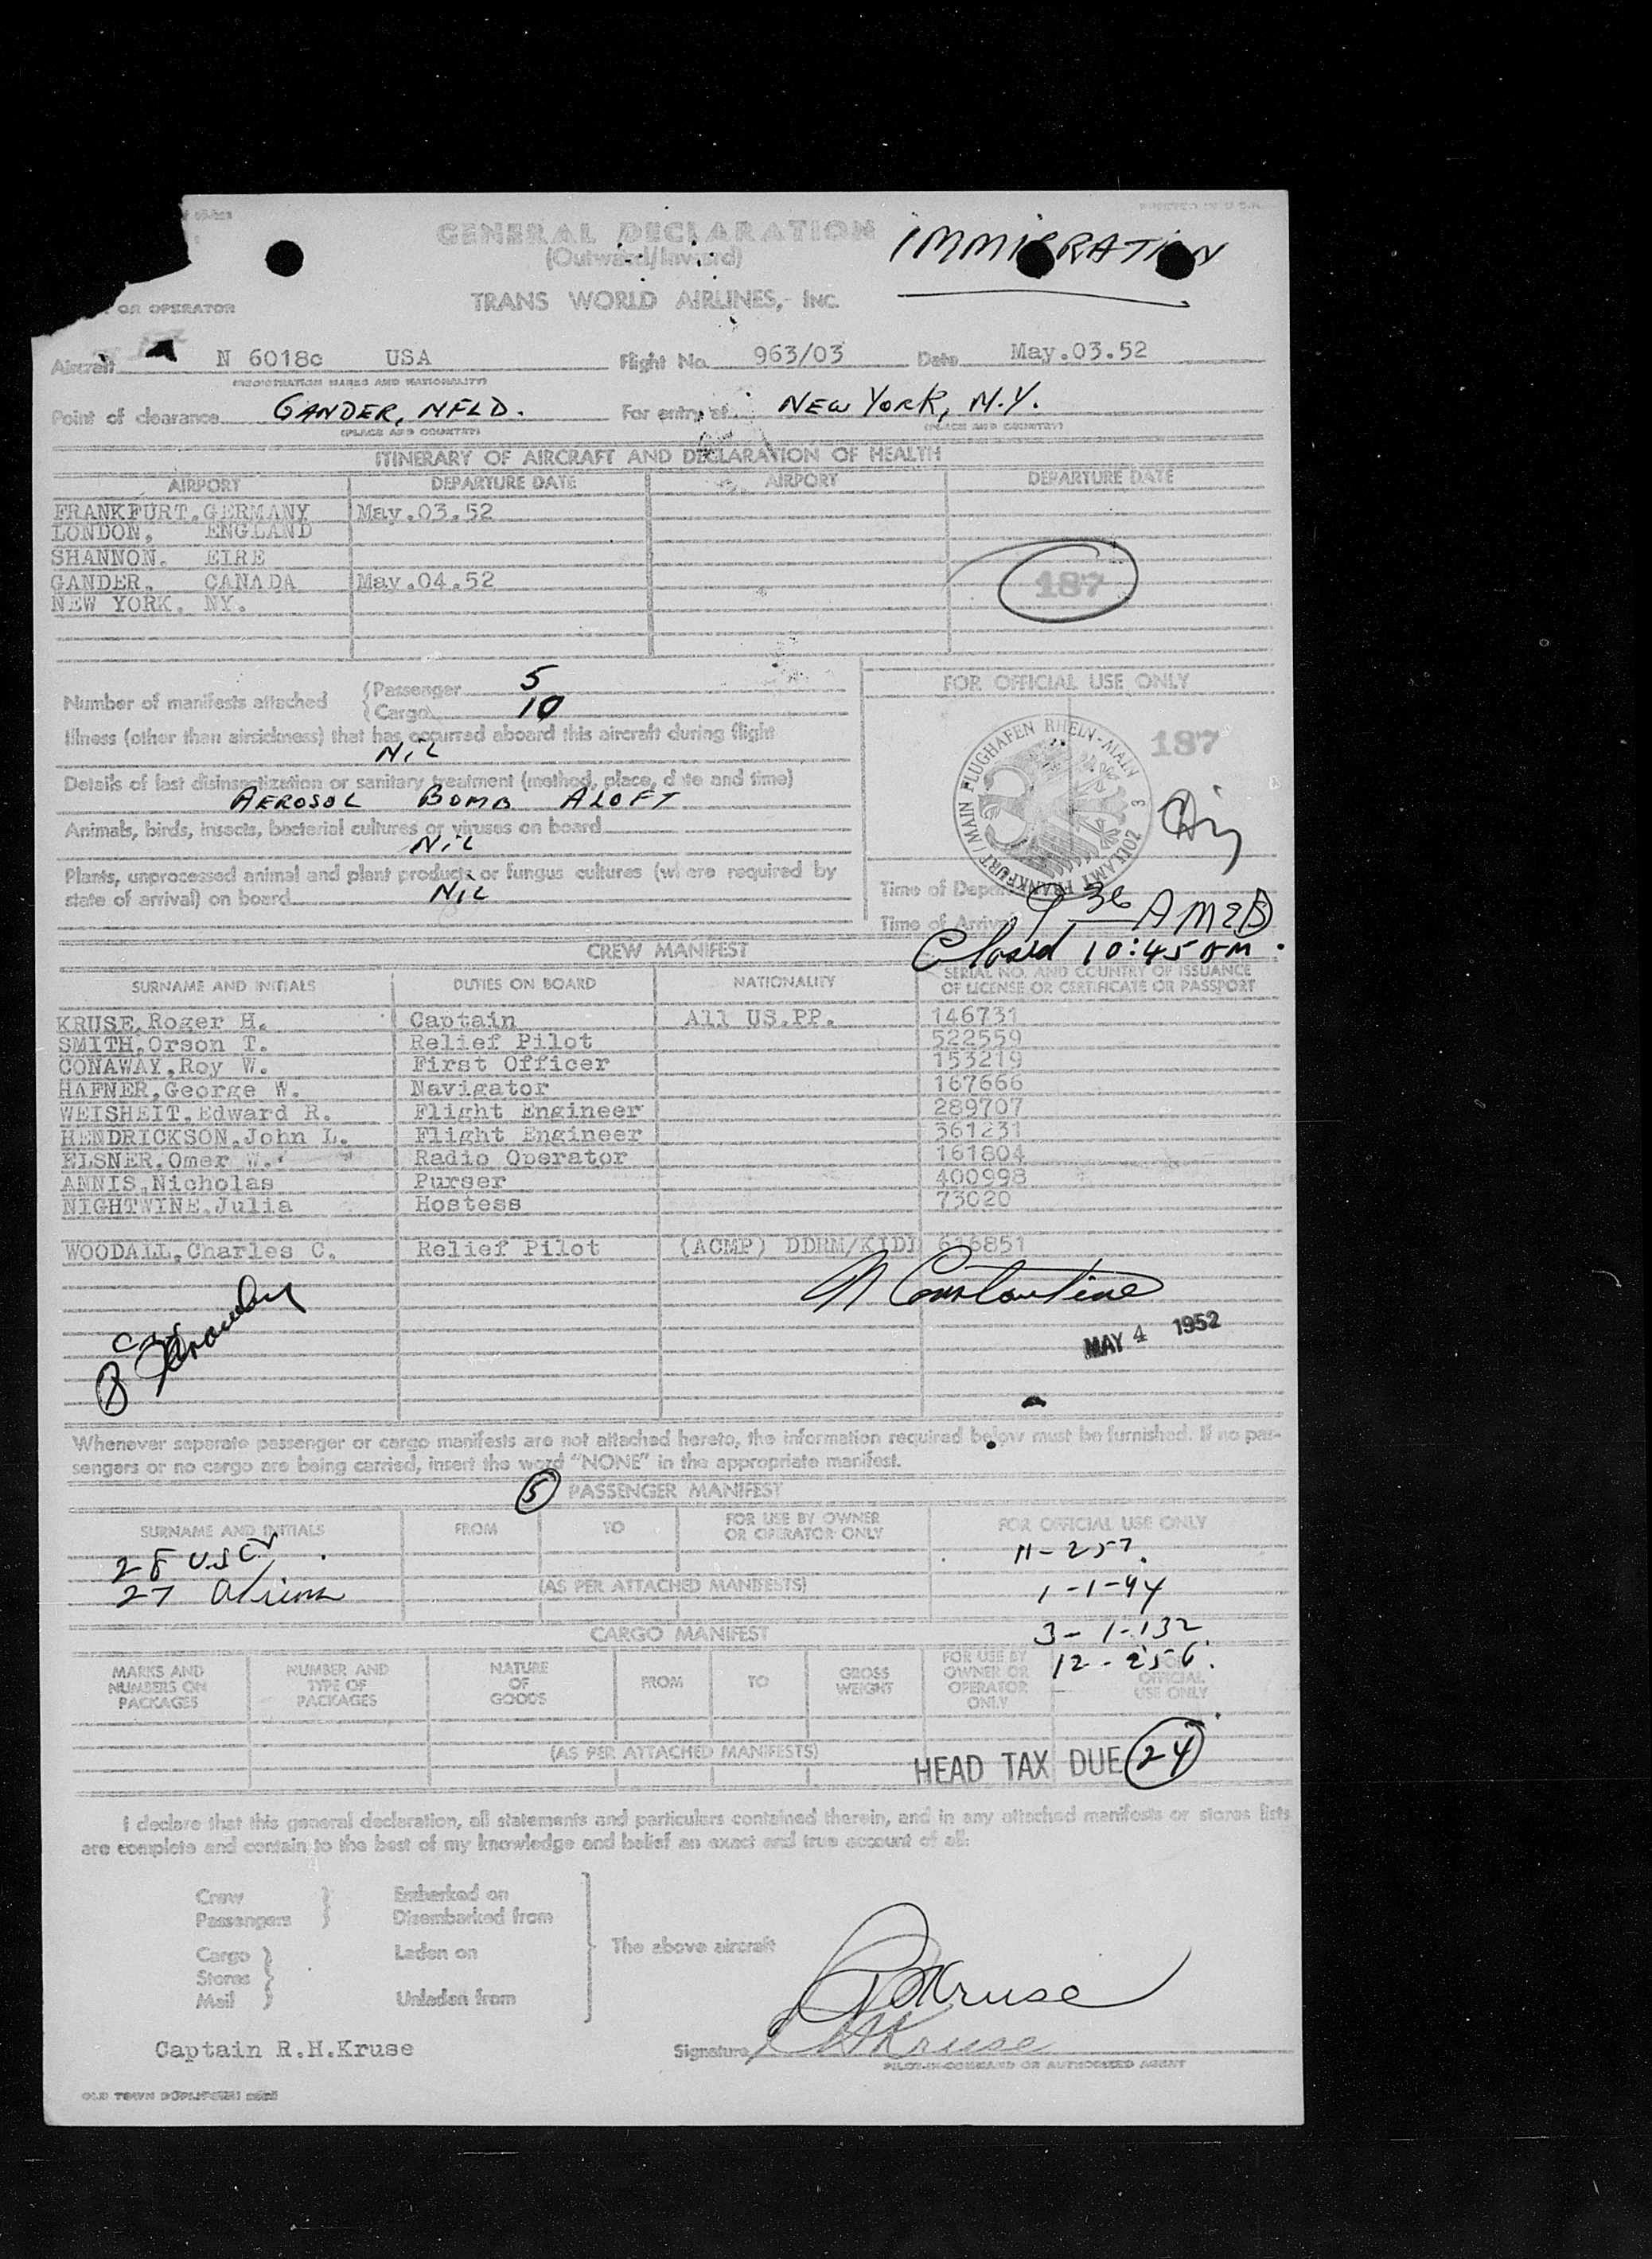 PRINTED IN U.S.A.
GENERAL DECLARATION
(Outward/Inward)
IMMIGRATION
OR OPERATOR
TRANS WORLD AIRLINES, INC.
Aircraft N 6018c USA Flight No. 963/03 Date May.03.52
(REGISTRATION MARKS AND NATIONALITY)
Point of clearance GANDER, NFLD. For entry at NEW YORK, N.Y.
(PLACE AND COUNTRY) (PLACE AND COUNTRY)
ITINERARY OF AIRCRAFT AND DECLARATION OF HEALTH
AIRPORT DEPARTURE DATE AIRPORT DEPARTURE DATE
FRANKFURT,GERMANY May.03.52
LONDON, ENGLAND
SHANNON. EIRE
GANDER, CANADA May.04.52
187
NEW YORK, NY.
Number of manifests attached
(Passenger 5
(Cargo 10
FOR OFFICIAL USE ONLY
Illness (other than airsickness) that has occurred aboard this aircraft during flight
NiL
187
FLUGHAFEN RHEIN-MAIN
ZOLLAMT FRANKFURT/MAIN
Details of last disinsectization or sanitary treatment (method, place, date and time)
AEROSOL BOMB ALOFT
Animals, birds, insects, bacterial cultures or viruses on board
NiL
Plants, unprocessed animal and plant products or fungus cultures (where required by
state of arrival) on board NiL
Time of Depart
Time of Arriv 9 36 AM
Closed 10:45 AM.
CREW MANIFEST
SURNAME AND INITIALS DUTIES ON BOARD NATIONALITY SERIAL NO. AND COUNTRY OF ISSUANCE
OF LICENSE OR CERTIFICATE OR PASSPORT
KRUSE,Roger H. Captain All US.PP. 146731
SMITH,Orson T. Relief Pilot 522559
CONAWAY,Roy W. First Officer 153219
HAFNER,George W. Navigator 167666
WEISHEIT,Edward R. Flight Engineer 289707
HENDRICKSON,John L. Flight Engineer 361231
ELSNER,Omer W. Radio Operator 161804
ANNIS,Nicholas Purser 400998
NIGHTWINE,Julia Hostess 73020
WOODALL,Charles C. Relief Pilot (ACMP) DDRM/KIDI 616851
N Constantine
MAY 4 1952
Whenever separate passenger or cargo manifests are not attached hereto, the information required below must be furnished. If no pas-
sengers or no cargo are being carried, insert the word "NONE" in the appropriate manifest.
5 PASSENGER MANIFEST
SURNAME AND INITIALS FROM TO FOR USE BY OWNER
OR OPERATOR ONLY FOR OFFICIAL USE ONLY
28 USC
11-257.
27 Aliens
(AS PER ATTACHED MANIFESTS)
1-1-94
CARGO MANIFEST
3-1-132
12-256.
MARKS AND
NUMBERS ON
PACKAGES
NUMBER AND
TYPE OF
PACKAGES
NATURE
OF
GOODS
FROM
TO
GROSS
WEIGHT
FOR USE BY
OWNER OR
OPERATOR
ONLY
FOR
OFFICIAL
USE ONLY
(AS PER ATTACHED MANIFESTS)
HEAD TAX DUE 24
I declare that this general declaration, all statements and particulars contained therein, and in any attached manifests or stores lists
are complete and contain to the best of my knowledge and belief an exact and true account of all:
Crew
Passengers
Embarked on
Disembarked from
Cargo
Stores
Mail
Laden on
Unladen from
The above aircraft
RHKruse
Captain R.H.Kruse
Signature RHKruse
PILOT-IN-COMMAND OR AUTHORIZED AGENT